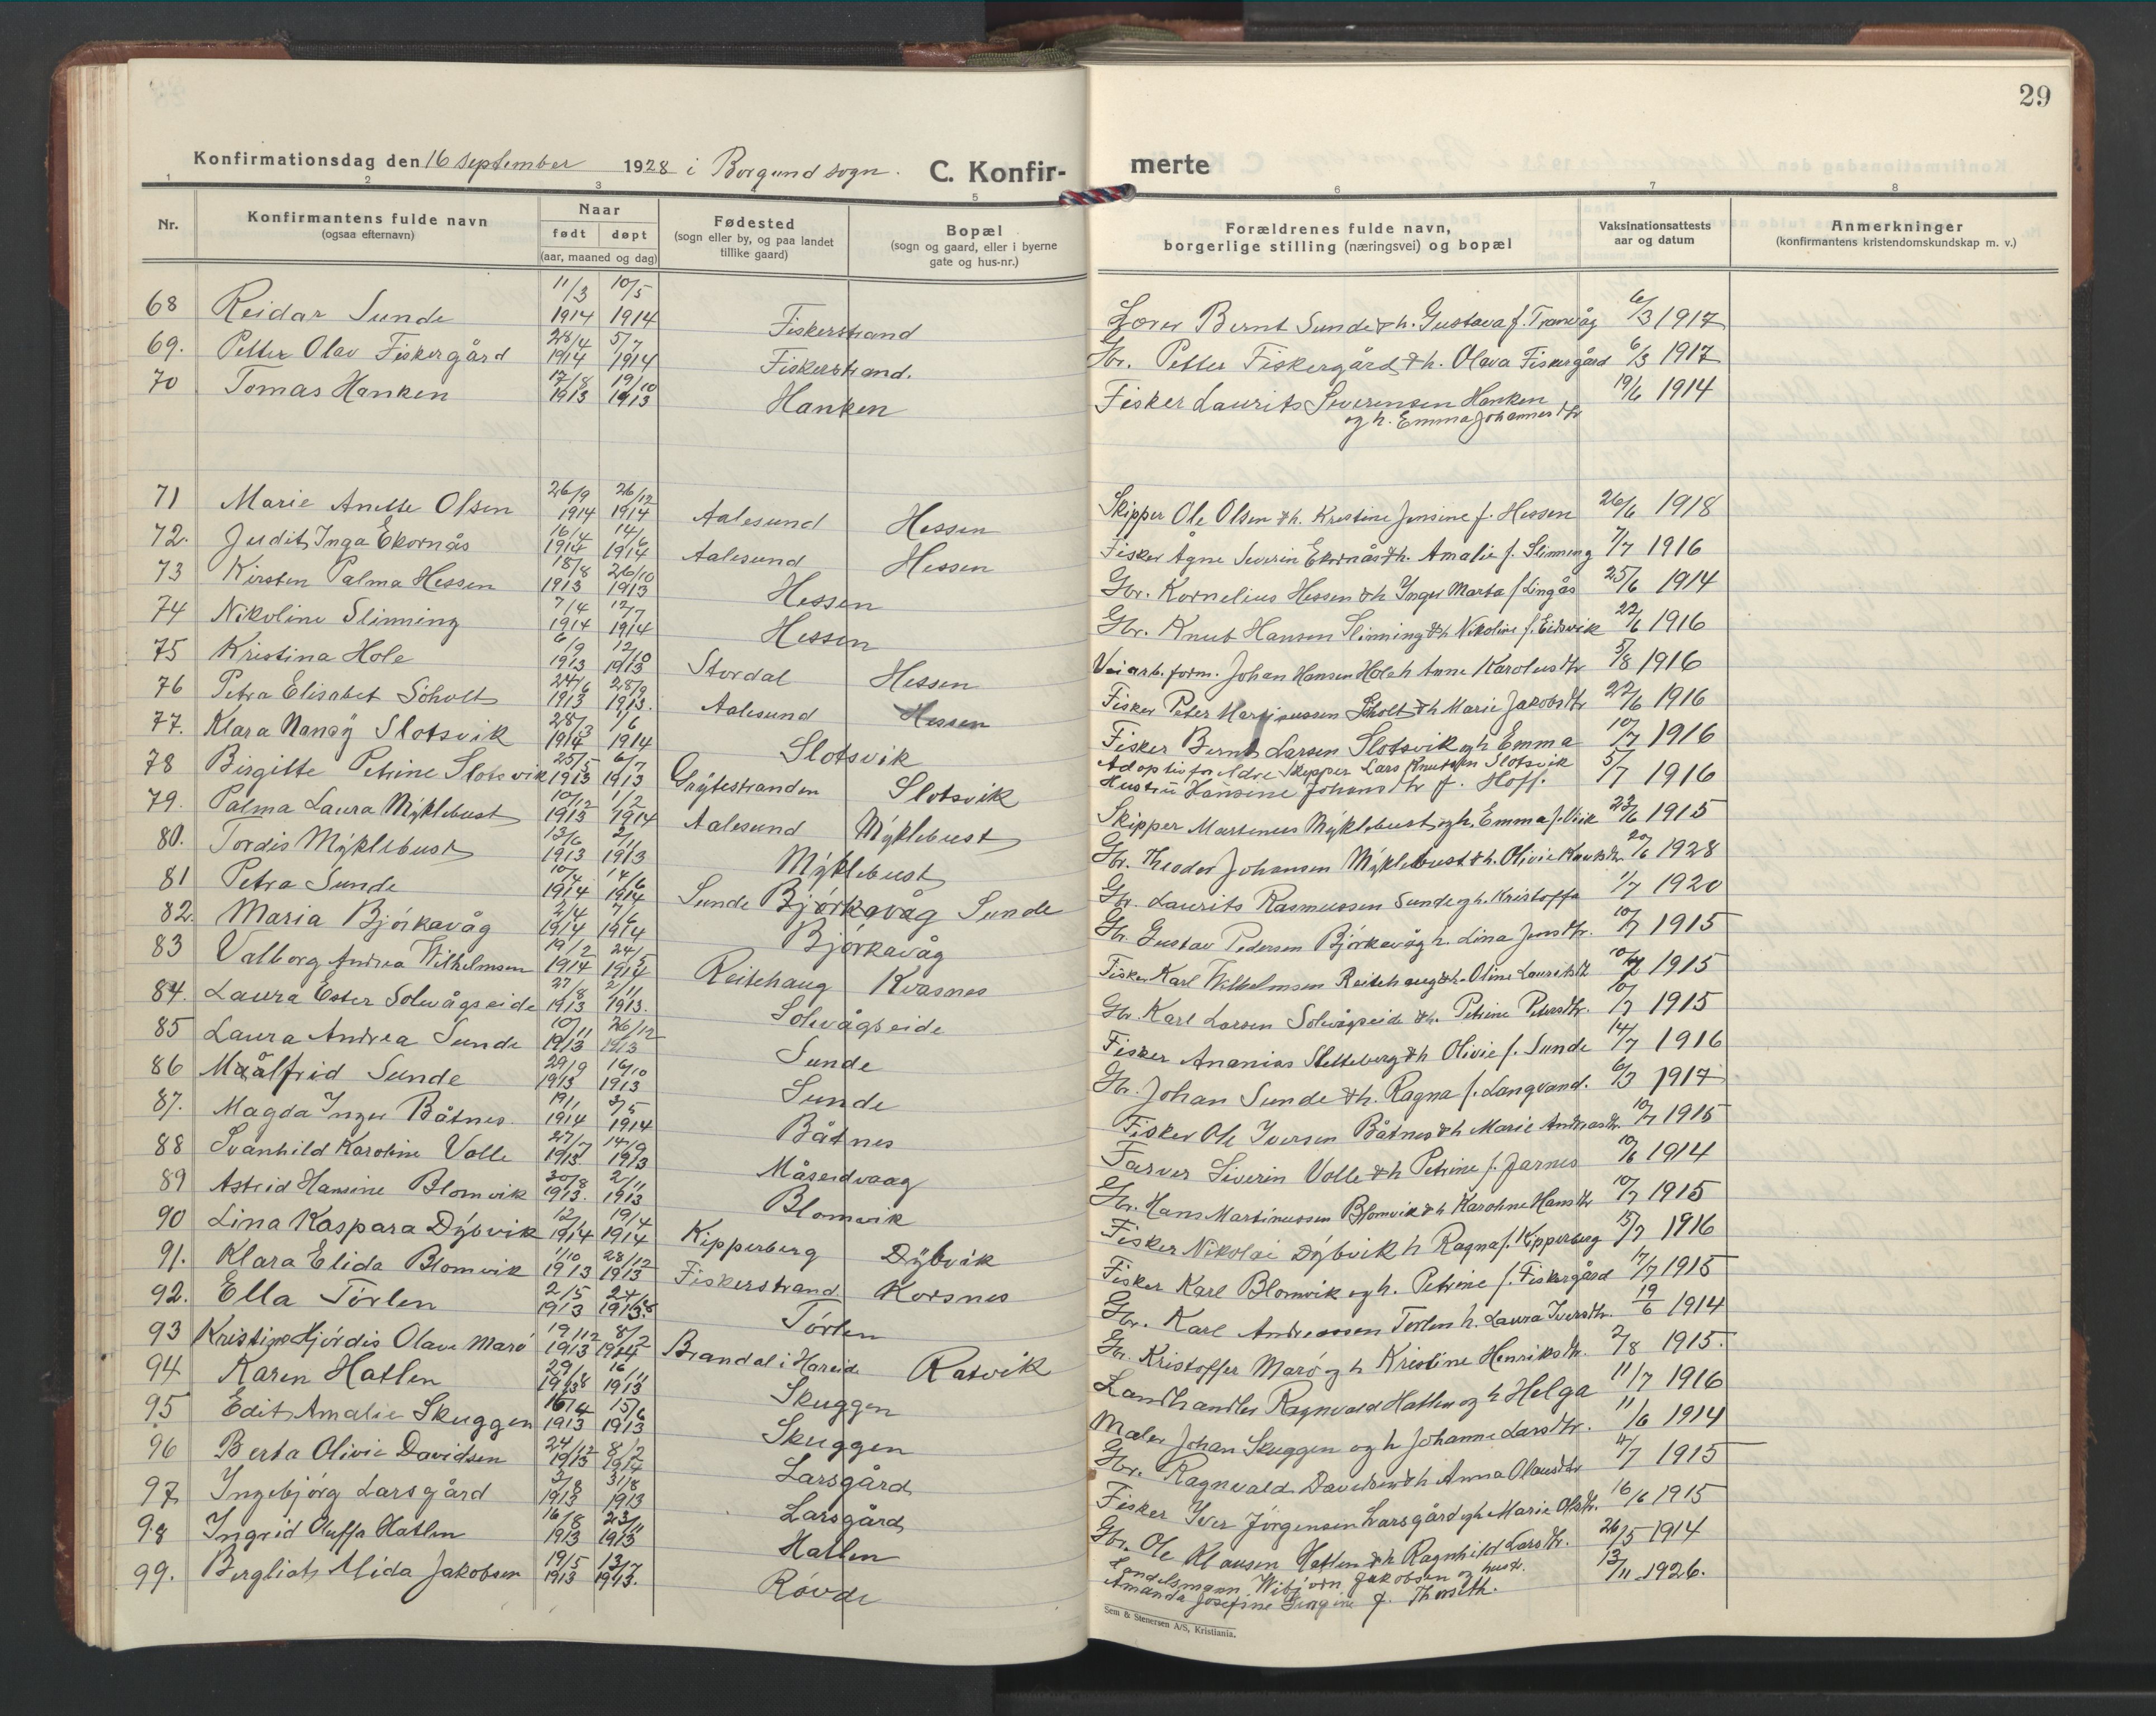 29
Konfirmationsdag den 16 september 1928 i Borgund sogn. C. Konfir- merte
1 2 3 5 6 7 8
Nr. Konfirmantens fulde navn (ogsaa efternavn) Naar født døpt (aar, maaned og dag) Fødested (sogn eller by, og paa landet tillike gaard) Bopæl (sogn og gaard, eller i byerne gate og hus-nr.) Forældrenes fulde navn, borgerlige stilling (næringsvei) og bopæl Vaksinationsattests aar og datum Anmerkninger (konfirmantens kristendomskundskap m. v.)
68 Reidar Sunde 11/3 1914 10/5 1914 Fiskerstrand Bernt Sunde & h. Gustava f. Tranvåg 6/3 1917
69. Petter Olav Fiskergård 28/4 1914 5/7 1914 Fiskerstrand. Gbr. Petter Fiskergård & h. Olava Fiskergård 6/3 1917
70 Tomas Hanken 17/8 1913 19/10 1913 Hanken Fisker Laurits Severensen Hanken
og h. Emma Johannesdtr 19/6 1914
71 Marie Anette Olsen 26/9 1914 26/12 1914 Aalesund Hessen Skipper Ole Olsen & h. Kristine Jensine f. Hessen 26/6 1918
72. Judit Inga Ekornås 16/4 1914 14/6 1914 Aalesund Hessen Fisker Ågne Severin Ekornås & h. Amalie f. Slinning 7/7 1916
73 Kirsten Palma Hessen 18/8 1913 26/10 1913 Hessen Gbr. Kornelius Hessen & h Inger Marta f Lingås 25/6 1914
74 Nikoline Slinning 7/4 1914 12/7 1914 Hessen Gbr. Knut Hansen Slinning & h Nikoline f. Eidsvik 22/6 1916
75 Kristina Hole 6/9 1913 12/10 1913 Stordal Hessen Veiarb. form. Johan Hansen Hole h Anne Karolusdtr 5/8 1916
76 Petra Elisabet Söholt 24/6 1913 28/9 1913. Aalesund Hessen Fisker Peter Martinussen Söholt & h Marie Jakobsdtr 22/6 1916
77. Klara Nancy Slotsvik 28/3 1914 1/6 1914 Slotsvik Fisker Bernt Larsen Slotsvik og h Emma 10/7 1916
78 Birgitte Petrine Slotsvik 25/5 1913 6/7 1913 Gråtestranden Slotsvik Adoptivforeldre Skipper Lars Knutsen Slotsvik
Hustru Hansine Johansdtr f. Hoff. 5/7 1916
79. Palma Laura Myklebust 10/12 1913 1/2 1914 Aalesund Myklebust Skipper Martinus Myklebust og h. Emma f. Vik 23/6 1915
80. Tordis Myklebust 13/6 1913 2/11 1913 Myklebust Gbr. Theodor Johansen Myklebust & h. Olivie Knutsdtr. 20/6 1928
81 Petra Sunde 10/4 1914 14/6 1914 Sunde Björkavåg Sunde Gbr. Laurits Rasmussen Sunde og h. Kristoffa 1/7 1920
82. Maria Björkavåg 2/4 1914 7/6 1914 Björkavåg Gbr. Gustav Pedersen Björkavåg h. Lina Jensdtr. 10/7 1915
83 Valborg Andrea Wilhelmsen 19/2 1914 24/5 1914 Reitehaug Kvasnes Fisker Karl Wilhelmsen Reitehaug & h. Oline Lauritsdtr 10/7 1915
84. Laura Ester Solevågseide 27/8 1913 2/11 1913. Solevågseide Gbr. Karl Larsen Solevågseide & h. Petrine Petersdtr. 10/7 1915
85 Laura Andrea Sunde 10/11 1913 26/12 1913 Sunde Fisker Ananias Sletteberg & h Olivie f. Sunde 14/7 1916
86 Målfrid Sunde 29/9 1913 16/10 1913 Sunde Gbr. Johan Sunde & h. Ragna f. Langvand. 6/3 1917
87. Magda Inger Båtnes. 19/1 1914 3/5 1914 Båtnes Fisker Ole Iversen Båtnes & h Marie Andreasdtr. 10/7 1915
88 Svanhild Karoline Valle 27/7 1913 14/9 1913 Måseidvaag Farver Siverin Valle & h Petrine f. Jarnes 10/6 1914
89 Astrid Hansine Blomvik 30/8 1913. 2/11 1913 Blomvik Gbr. Hans Martinussen Blomvik & h Karoline Hansdtr 10/7 1915
90 Lina Kaspara Dybvik 12/1 1914 19/4 1914 Kipperberg Dybvik Fisker Nikolai Dybvik h Ragna f. Kipperberg 15/7 1916
91. Klara Elida Blomvik 1/10 1913 28/12 1913 Fiskerstrand Korsnes Fisker Karl Blomvik og h. Petrine f. Fiskergård 17/7 1915
92. Ella Törlen 2/5 1913 Törlen Gbr. Karl Andreassen Törlen h. Laura Iversdtr. 19/6 1914
93 Kristine Hjördis Olava Marö 19/12 1913 8/2 1914 Brandal i Hareid Ratvik Gbr. Kristoffer Marö og h Kristine Henriksdtr. 2/8 1915.
94 Karen Hatlen 29/8 1913 16/11 1913 Skuggen Landhandler Ragnvald Hatlen og h Helga 11/7 1916
95 Edit Amalie Skuggen 16/4 1913 15/6 1913 Skuggen Maler Johan Skuggen og h Johanne Larsdtr. 11/6 1914
96 Berta Olivie Davidsen 24/12 1913 8/2 1914 Larsgård Gbr. Ragnvald Davidsen & h Anna Olausdtr 4/7 1915
97 Ingebjörg Larsgård 3/8 1913 31/8 1913 Larsgård Fisker Iver Jörgensen Larsgård og h Marie Olsdtr. 16/6 1915
98 Ingrid Oluffa Hatlen 16/8 1913 23/11 1913 Hatlen Gbr. Ole Klausen Hatlen & h Ragnhild Larsdtr. 26/5 1914
99. Bergliot Alida Jakobsen 19/5 1913 13/7 1913. Rövde Handelsmann Wibjörn Jakobsen og hust.
Amanda Josefine f. Thorseth. 13/11 1926.
Sem & Stenersen A/S, Kristiania.